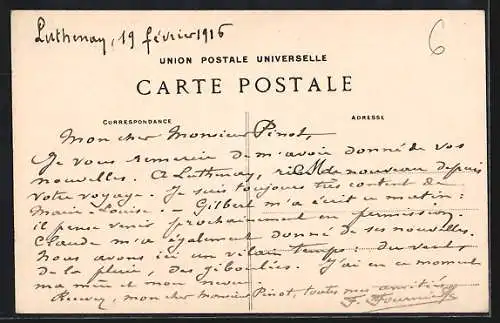 Luthenay, 19 février 1916
6
UNION POSTALE UNIVERSELLE
CARTE POSTALE
CORRESPONDANCE
ADRESSE
Mon cher Monsieur Pinot,
Je vous remercie de m'avoir donné de vos
nouvelles. A Luthenay, de nouveau depuis
votre voyage. Je suis toujours très content de
Marie Louise. - Gilbert m'a écrit ce matin :
il pense venir prochainement en permission.
Claude m'a également donné de ses nouvelles.
Nous avons ici un vilain temps : du vent,
de la pluie, des giboulées. J'ai en ce moment
ma mère et mon neveu
Recevez, mon cher Monsieur Pinot, toutes mes amitiés